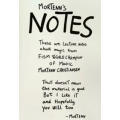 MORTENN'S
NOTES
These are lecture notes
about magic from
FISM WORLD CHAMPION
of MAGIC
MORTENN CHRISTIANSEN
That doesn't mean
the material is good
But I like it
and Hopefully
you will too
- MORTENN